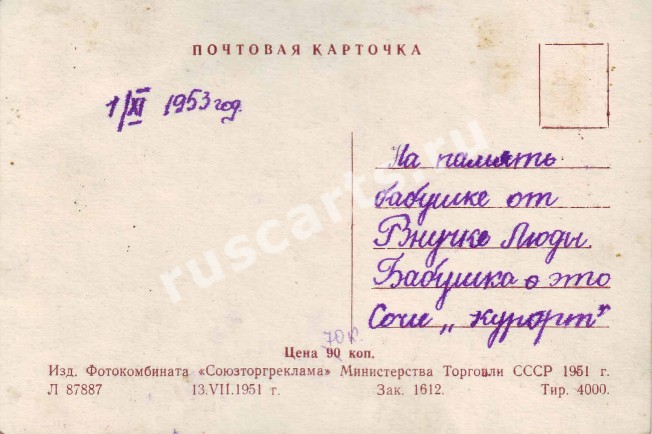 ПОЧТОВАЯ КАРТОЧКА
1/XI 1953 год.
На память
бабушке от
Внучке Люды.
Бабушка о это
Сочи „ курорт"
70 к.
Цена 90 коп.
Изд. Фотокомбината «Союзторгреклама» Министерства Торговли СССР 1951 г.
Л 87887 13.VII.1951 г. Зак. 1612. Тир. 4000.
ruscarts.ru